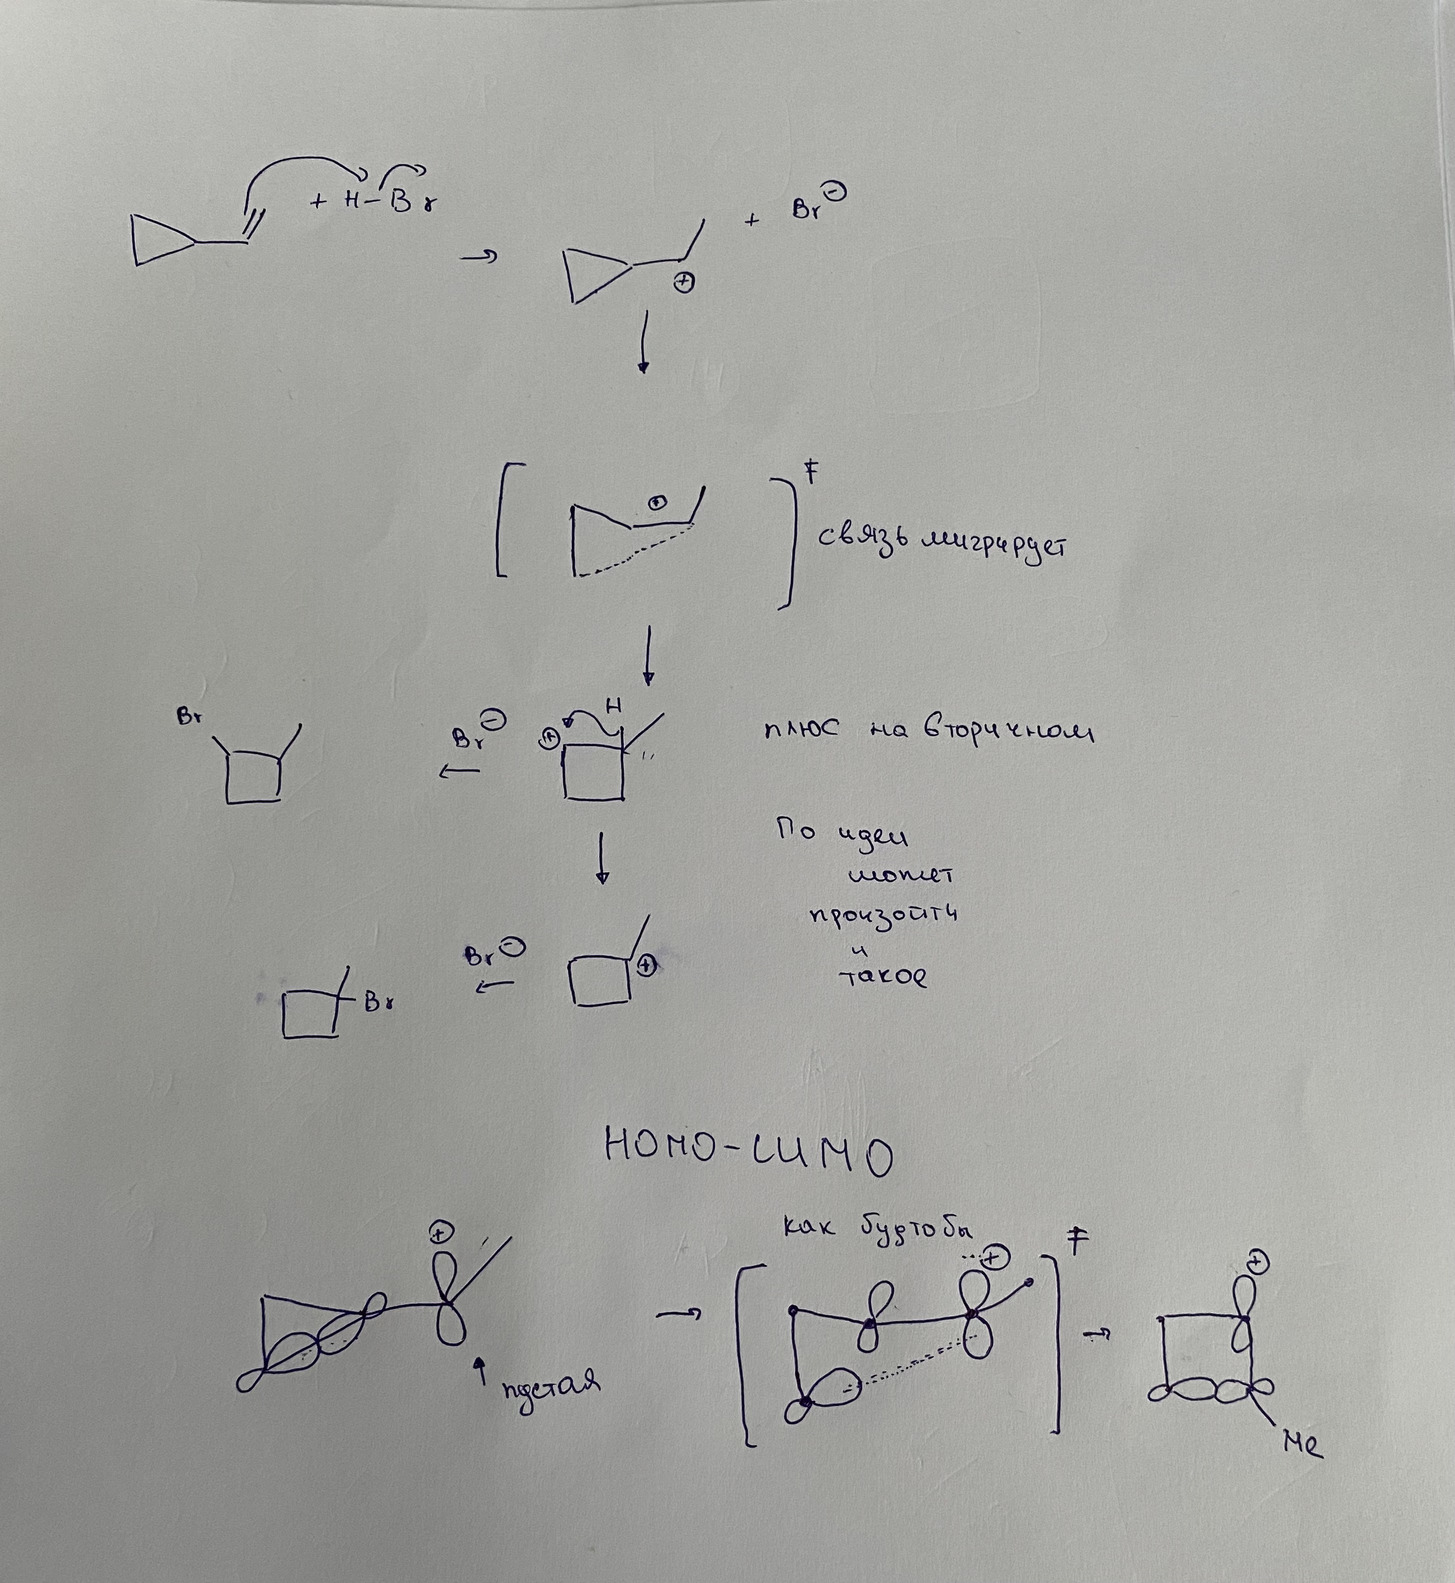 + H–Br
+ Br⊖
⊕
⊕
‡
связь мигрирует
Br
Br⊖
⊕
H
плюс на вторичном
По идеи
может
произойти
и
такое
Br⊖
Br
⊕
HOMO-LUMO
как будтобы
⊕
⊕
‡
⊕
пустая
Me